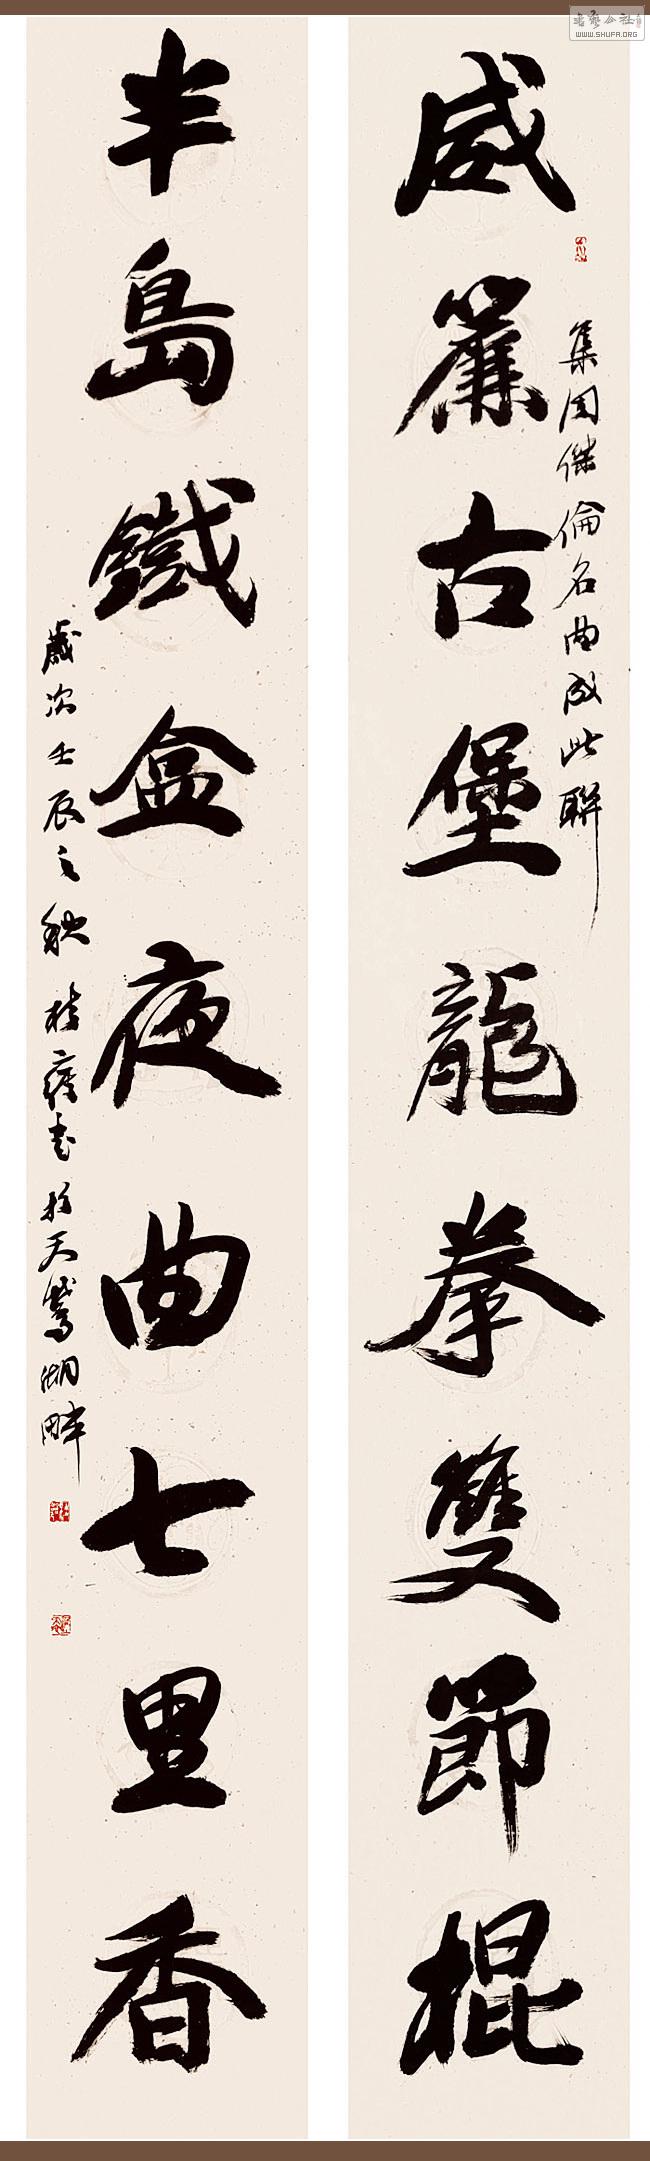 威簾古堡龍拳雙節棍
集周傑倫名曲成此聯
半島鐵盒夜曲七里香
歲次壬辰之秋 桂
書於天鵞湖畔
書藝公社
WWW.SHUFA.ORG